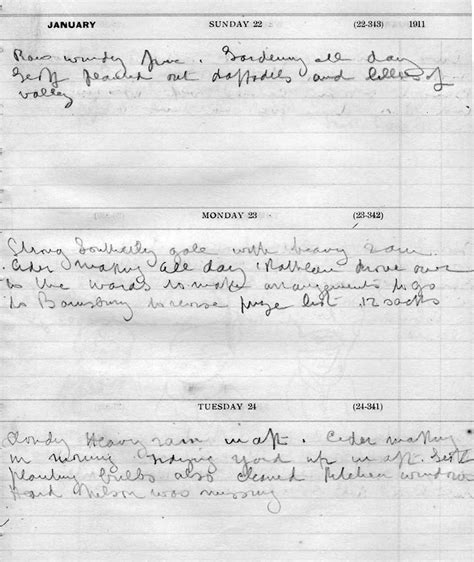 JANUARY SUNDAY 22 (22-343) 1911
windy fine. Gardening all day
Geoff planted out daffodils and lillies of
valley
MONDAY 23 (23-342)
Strong Southerly gale with heavy rain
Cider making all day. drove over
to the to make arrangements to go
to to revise prize list. 12 sacks
TUESDAY 24 (24-341)
Cloudy Heavy rain in aft. Cider making
in morning tidying yard up in aft. Geoff
planting bulbs also cleaned kitchen window
Nelson was missing